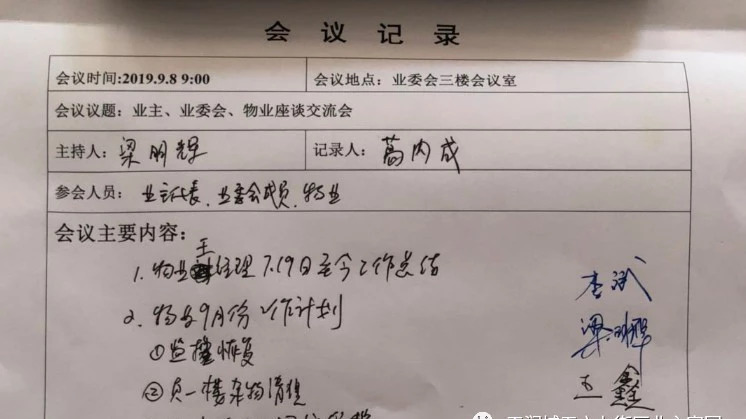 会 议 记 录
会议时间:2019.9.8 9:00 会议地点：业委会三楼会议室
会议议题：业主、业委会、物业座谈交流会
主持人：梁明辉 记录人：葛内成
参会人员：业主代表、业委会成员、物业
会议主要内容：
王
1. 物业经理 7.19日至今工作总结
2. 物业9月份工作计划
①监控恢复
②负一楼杂物清理
李斌
梁明辉
王鑫